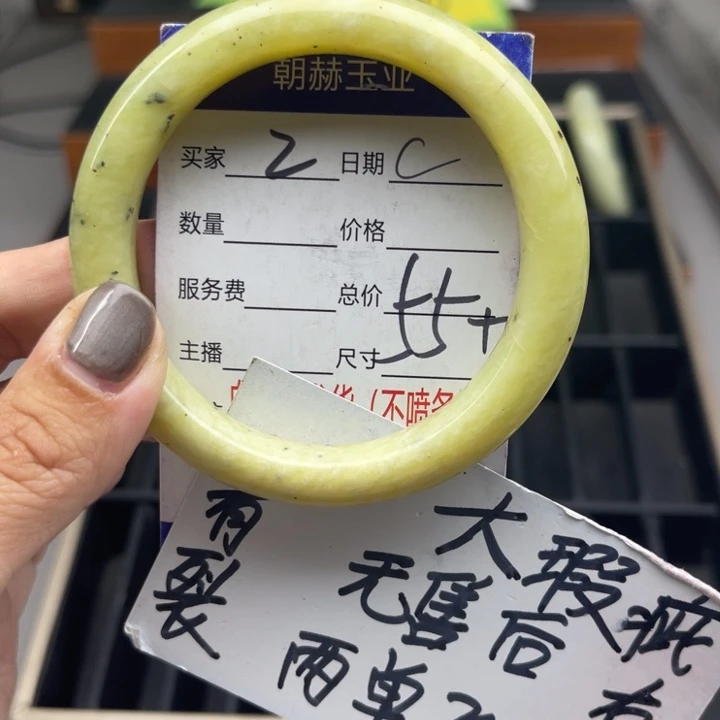 朝赫玉业
买家 2 日期 C
数量 价格
服务费 总价
主播 尺寸 55+
(不喷
有裂
大瑕疵
无售后
两单